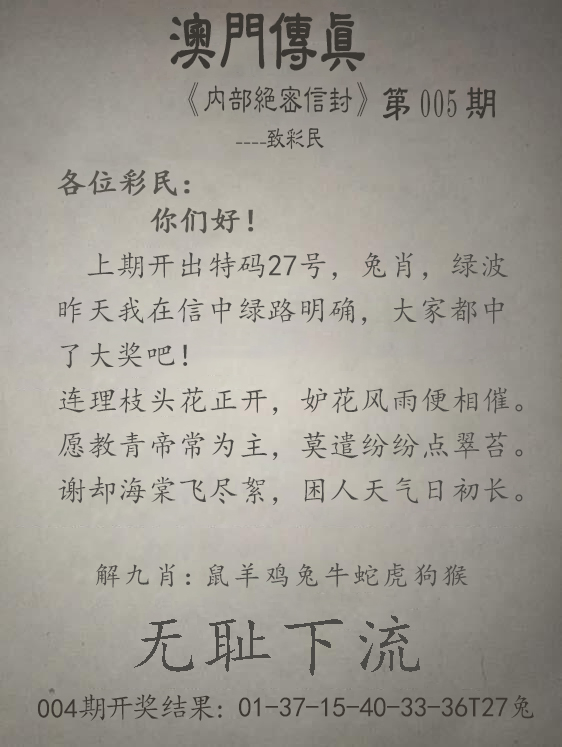 澳門傳眞
《内部絕密信封》第005期
----致彩民
各位彩民：
你们好！
上期开出特码27号，兔肖，绿波
昨天我在信中绿路明确，大家都中
了大奖吧！
连理枝头花正开，妒花风雨便相催。
愿教青帝常为主，莫遣纷纷点翠苔。
谢却海棠飞尽絮，困人天气日初长。
解九肖：鼠羊鸡兔牛蛇虎狗猴
无耻下流
004期开奖结果：01-37-15-40-33-36T27兔